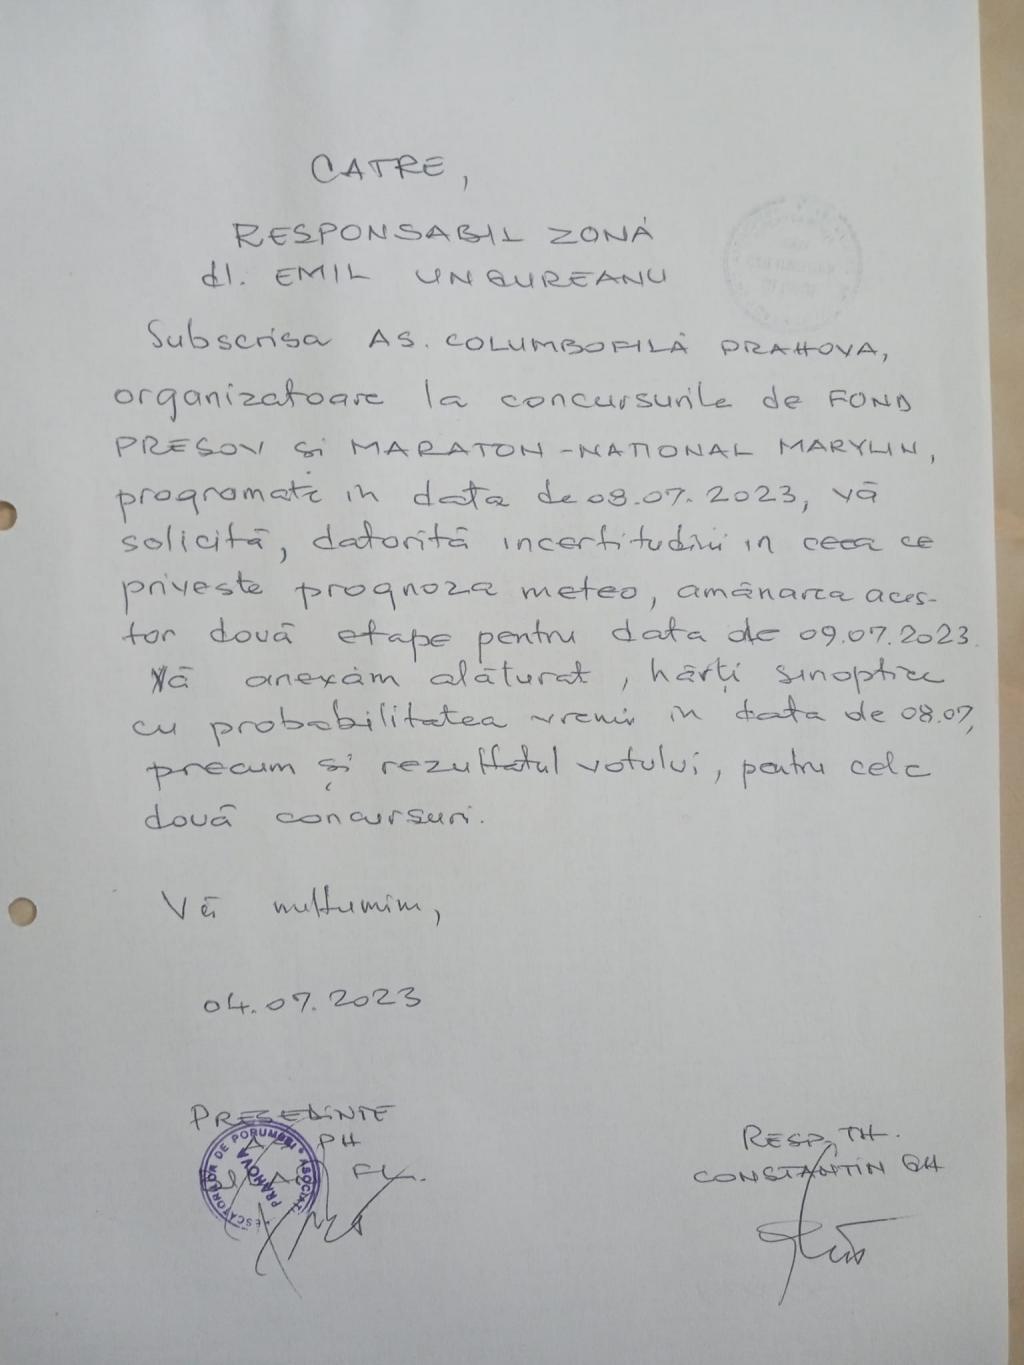 CATRE,
RESPONSABIL ZONĂ
dl. EMIL UNGUREANU
Subscrisa AS. COLUMBOFILĂ PRAHOVA,
organizatoare la concursurile de FOND
PRESOV și MARATON-NATIONAL MARYLIN,
programate in data de 08.07.2023, vă
solicită, datorită incertitudinii in ceea ce
priveste prognoza meteo, amânarea aces-
tor două etape pentru data de 09.07.2023.
Vă anexăm alăturat, hărți sinoptice
cu probabilitatea vremii in data de 08.07,
precum și rezultatul votului, pentru cele
două concursuri.
Vă multumim,
04.07.2023
PRESEDINTE
PH
FL.
ASOCIAȚI
DE PORUMBEI
PRAHOVA
RESP. TH.
CONSTANTIN GH